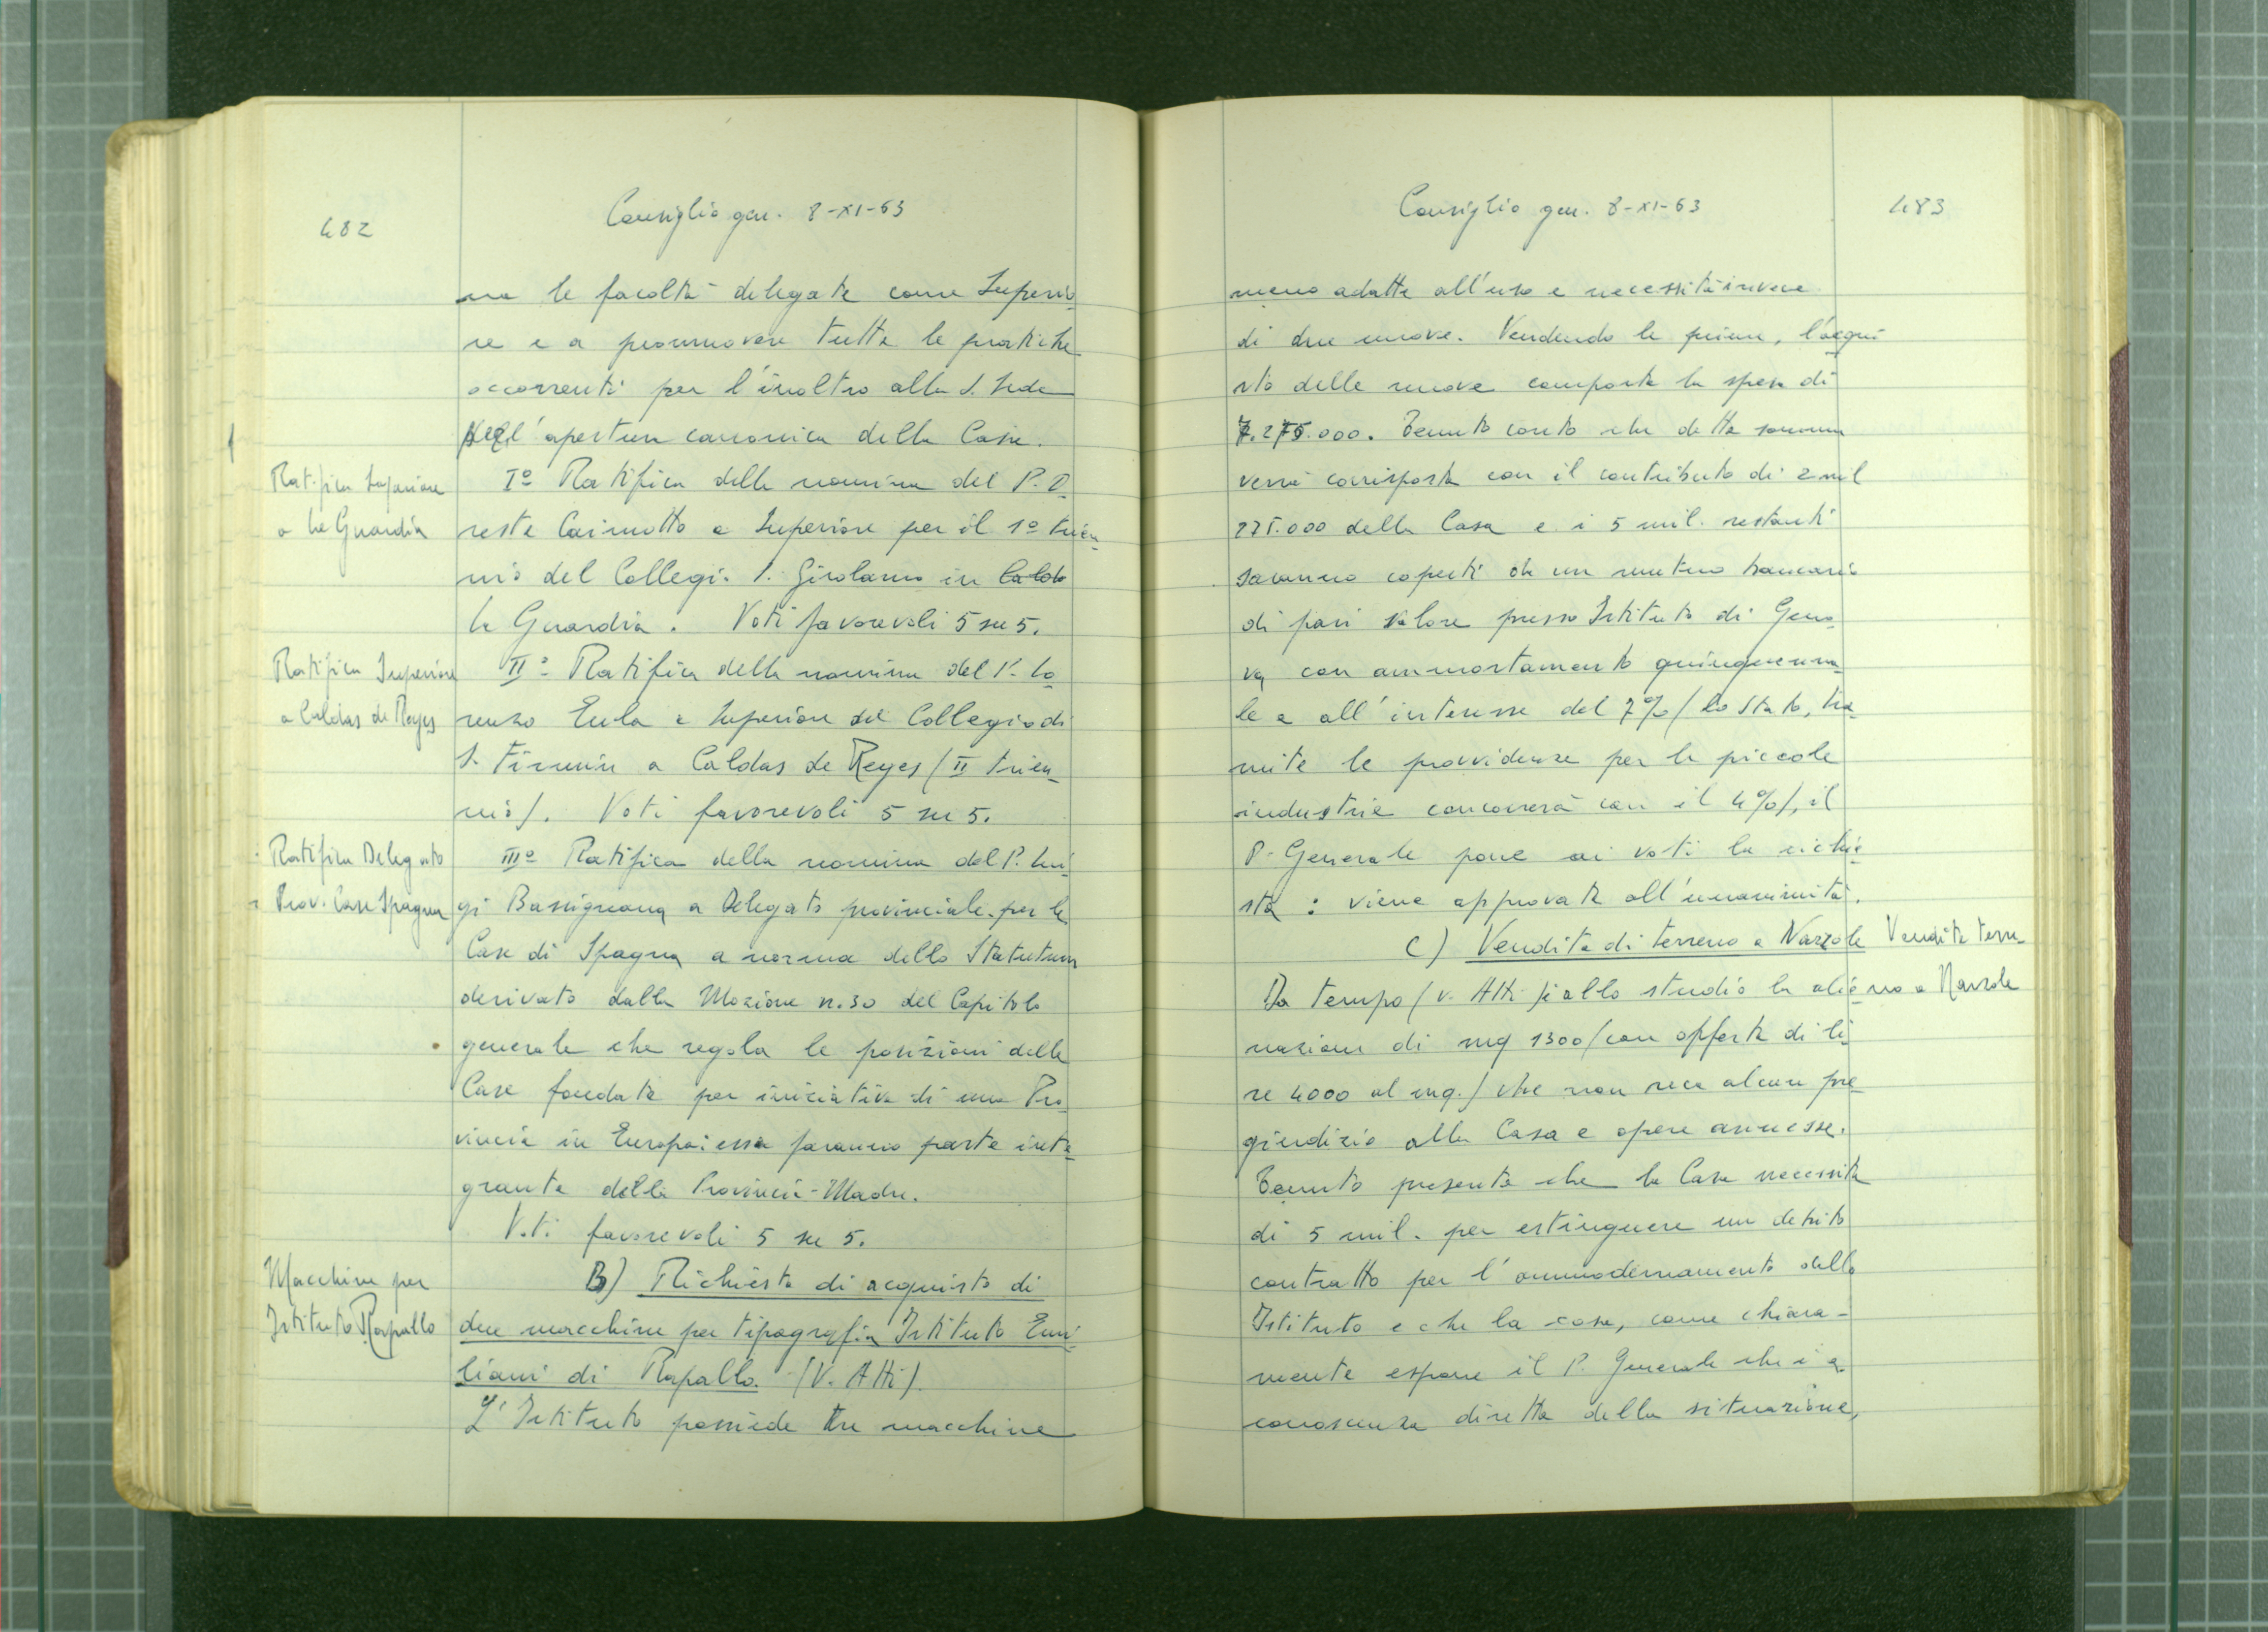 482
Consiglio gen. 8-XI-63
na le facoltà delegate come Superio
re e a promuovere tutte le pratiche
occorrenti per l'inoltro alla S. Sede
dell'apertura canonica della Casa.
Ratifica Superiore
a La Guardia
I° Ratifica della nomina del P. O
reste Caimotto a Superiore per il 1° trien
nio del Collegio S. Girolamo in Calda
La Guardia. Voti favorevoli 5 su 5.
Ratifica Superiore
a Caldas de Reyes
II° Ratifica della nomina del P. Lo
renzo Eula a Superiore del Collegio di
S. Firmin a Caldas de Reyes (II trien
nio). Voti favorevoli 5 su 5.
Ratifica Delegato
Prov. Case Spagna
III° Ratifica della nomina del P. Lui
gi Bassignana a Delegato provinciale per le
Case di Spagna a norma dello Statutum
derivato dalla Mozione n. 30 del Capitolo
generale che regola le posizioni delle
Case fondate per iniziativa di una Pro
vincia in Europa: esse faranno parte inte
grante della Provincia-Madre.
Voti favorevoli 5 su 5.
Macchine per
Istituto Rapallo
B) Richiesta di acquisto di
due macchine per tipografia Istituto Emi
liani di Rapallo. (V. Atti).
L'Istituto possiede tre macchine
Consiglio gen. 8-XI-63
483
meno adatte all'uso e necessità invece
di due nuove. Vendendo le prime, l'acqui
sto delle nuove comporta la spesa di
7.275.000. Tenuto conto che detta somma
verrà corrisposta con il contributo di 2 mil
275.000 della Casa e i 5 mil. restanti
saranno coperti da un mutuo bancario
di pari valore presso Istituto di Geno
va con ammortamento quinquenna
le e all'interesse del 7% (lo Stato, tra
mite le provvidenze per le piccole
industrie concorrerà con il 4%), il
P. Generale pone ai voti la richie
sta: viene approvata all'unanimità.
C) Vendita di terreno a Narzole
Vendita terre
no a Narzole
Da tempo (v. Atti) è allo studio la alie
nazione di mq 1300 (con offerta di li
re 4000 al mq.) che non reca alcun pre
giudizio alla Casa e opere annesse.
Tenuto presente che la Casa necessita
di 5 mil. per estinguere un debito
contratto per l'ammodernamento dello
Istituto e che la cosa, come chiara-
mente espone il P. Generale che è a
conoscenza diretta della situazione,